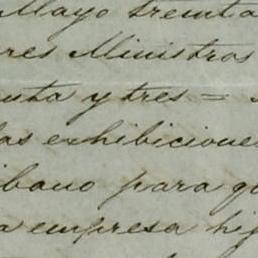 Mayo treinta
res Ministros
nta y tres =
las exhibicione
ibano para q
a empresa hi